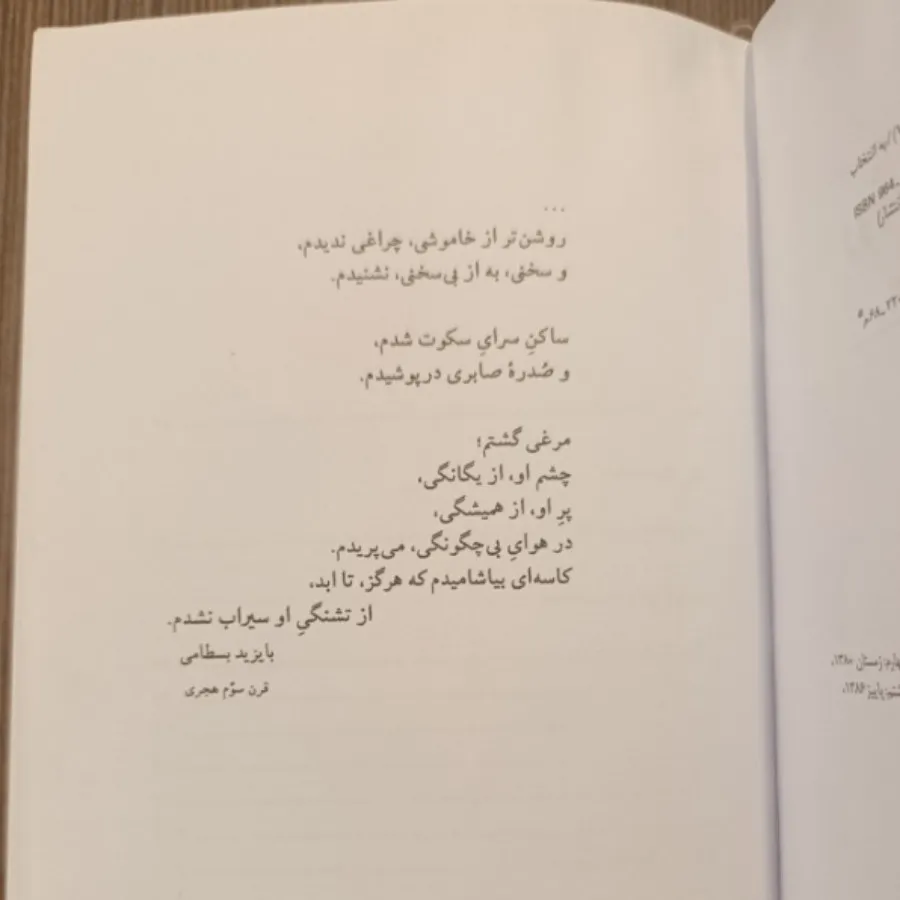 ...
روشن‌تر از خاموشی، چراغی ندیدم،
و سخنی، به از بی‌سخنی، نشنیدم.
ساکنِ سرایِ سکوت شدم،
و صُدرهٔ صابری درپوشیدم.
مرغی گشتم؛
چشم او، از یگانگی،
پرِ او، از همیشگی،
در هوایِ بی‌چگونگی، می‌پریدم.
کاسه‌ای بیاشامیدم که هرگز، تا ابد،
از تشنگیِ او سیراب نشدم.
بایزید بسطامی
قرن سوّم هجری
به انتخاب
ISBN 964-
زمستان ۱۳۸۰،
پاییز ۱۳۸۶،